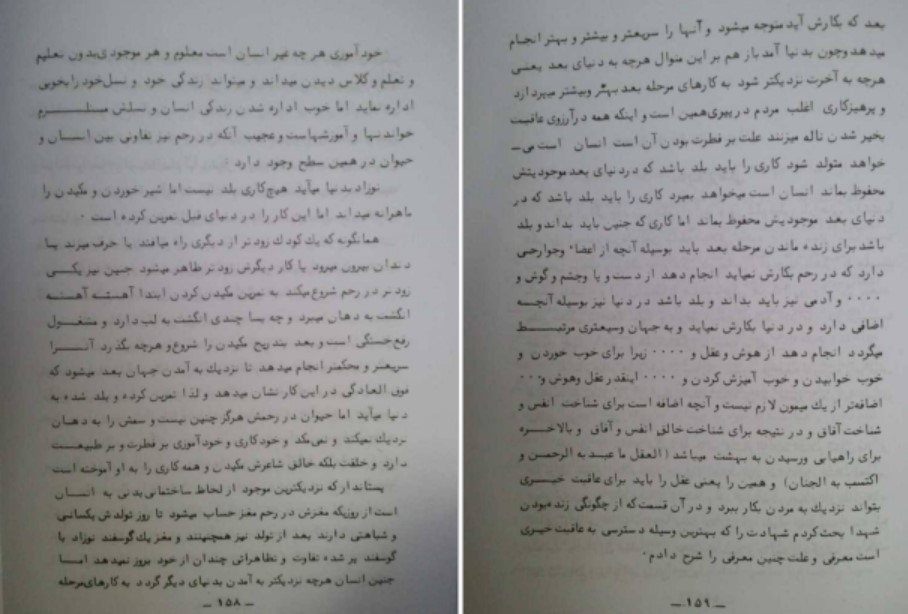 خود آموزی هر چه غیر انسان است معلوم و هر موجودی بدون تعلیم
و تعلم و کلاس دیدن میداند و میتواند زندگی خود و نسل خود را بخوبی
اداره نماید اما خوب اداره شدن زندگی انسان و نسلش مستلزم
خواندنها و آموزشهاست و عجیب آنکه در رحم نیز تفاوتی بین انسان و
حیوان در همین سطح وجود دارد
نوزاد بدنیا میآید هیچ کاری بلد نیست اما شیر خوردن و مکیدن را
ماهرانه میداند اما این کار را در دنیای قبل تمرین کرده است ۰
همانگونه که یك کودك زودتر از دیگری راه میافتد یا حرف میزند یا
دندان بیرون میرود یا کار دیگرش زودتر ظاهر میشود جنین نیز یکی
زودتر در رحم شروع میکند به تمرین مکیدن کردن ابتدا آهسته آهسته
انگشت به دهان میبرد و چه بسا چندی انگشت به لب دارد و مشغول
رفع خستگی است و بعد بتدریج مکیدن را شروع و هرچه بگذرد آنرا
سریعتر و محکمتر انجام میدهد تا نزدیك به آمدن جهان بعد میشود که
فوق العادگی در این کار نشان میدهد و لذا تمرین کرده و بلد شده به
دنیا میآید اما حیوان در رحمش هرگز چنین نیست و سمش را به دهان
نزدیك نمیکند و نمی مکد و خودکاری و خودآموزی بر فطرت و بر طبیعت
دارد و خلقت بلکه خالق شاعرش مکیدن و همه کاری را به او آموخته است
پستاندار که نزدیکترین موجود از لحاظ ساختمانی بدنی به انسان
است از روزیکه مغزش در رحم مغز حساب میشود تا روز تولدش یکسانی
و شباهتی دارند بعد از تولد نیز همچنینند و مغز یك گوسفند نوزاد با
گوسفند پر شده تفاوت و تظاهراتی چندان از خود بروز نمیدهد اما
جنین انسان هرچه نزدیکتر به آمدن بدنیای دیگر گردد به کارهای مرحله
ـ ۱۵۸ ـ
بعد که بکارش آید متوجه میشود و آنها را سریعتر و بیشتر و بهتر انجام
میدهد وچون بدنیا آمد باز هم بر این منوال هرچه به دنیای بعد یعنی
هرچه به آخرت نزدیکتر شود به کارهای مرحله بعد بهتر وبیشتر میپردازد
و پرهیزکاری اغلب مردم در پیری همین است و اینکه همه در آرزوی عاقبت
بخیر شدن ناله میزنند علت بر فطرت بودن آن است انسان است می‌ـ
خواهد متولد شود کاری را باید بلد باشد که در دنیای بعد موجودیتش
محفوظ بماند انسان است میخواهد بمیرد کاری را باید بلد باشد که در
دنیای بعد موجودیتش محفوظ بماند اما کاری که جنین باید بداند و بلد
باشد برای زنده ماندن مرحله بعد باید بوسیله آنچه از اعضاء وجوارحی
دارد که در رحم بکارش نمیاید انجام دهد از دست و پا وچشم و گوش و
۰۰۰۰ و آدمی نیز باید بداند و بلد باشد در دنیا نیز بوسیله آنچه
اضافی دارد و در دنیا بکارش نمیاید و به جهان وسیعتری مرتبط
میگردد انجام دهد از هوش و عقل و ۰۰۰۰ زیرا برای خوب خوردن و
خوب خوابیدن و خوب آمیزش کردن و ۰۰۰۰ اینقدر عقل وهوش و ۰۰۰
اضافه‌تر از یك میمون لازم نیست و آنچه اضافه است برای شناخت انفس و
شناخت آفاق و در نتیجه برای شناخت خالق انفس و آفاق و بالاخره
برای راهیابی ورسیدن به بهشت میباشد ( العقل ما عبد به الرحمن و
اکتسب به الجنان) و همین را یعنی عقل را باید برای عاقبت خیری
بتواند نزدیك به مردن بکار ببرد و در آن قسمت که از چگونگی زنده بودن
شهدا بحث کردم شهادت را که بهترین وسیله دسترسی به عاقبت خیری
است معرفی و علت چنین معرفی را شرح دادم ۰
ـ ۱۵۹ ـ